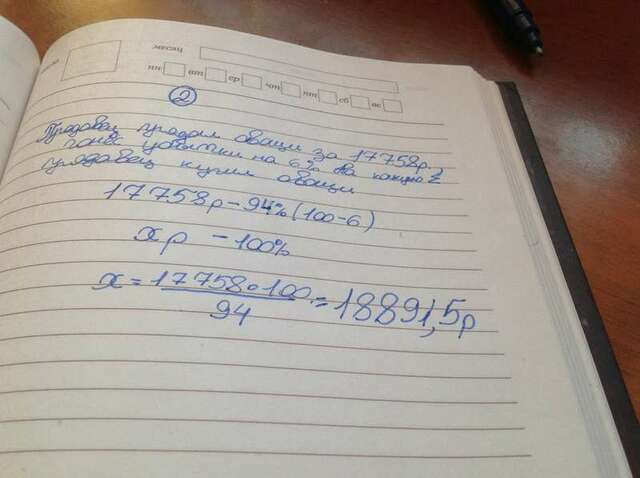 месяц
пн вт ср чт пт сб вс
2
Продавец продал овощи за 17758р,
понёс убытки на 6%. За какую Σ
продавец купил овощи
17758р – 94% (100-6)
х р – 100%
х = 17 758 · 100 / 94 = 18891,5р